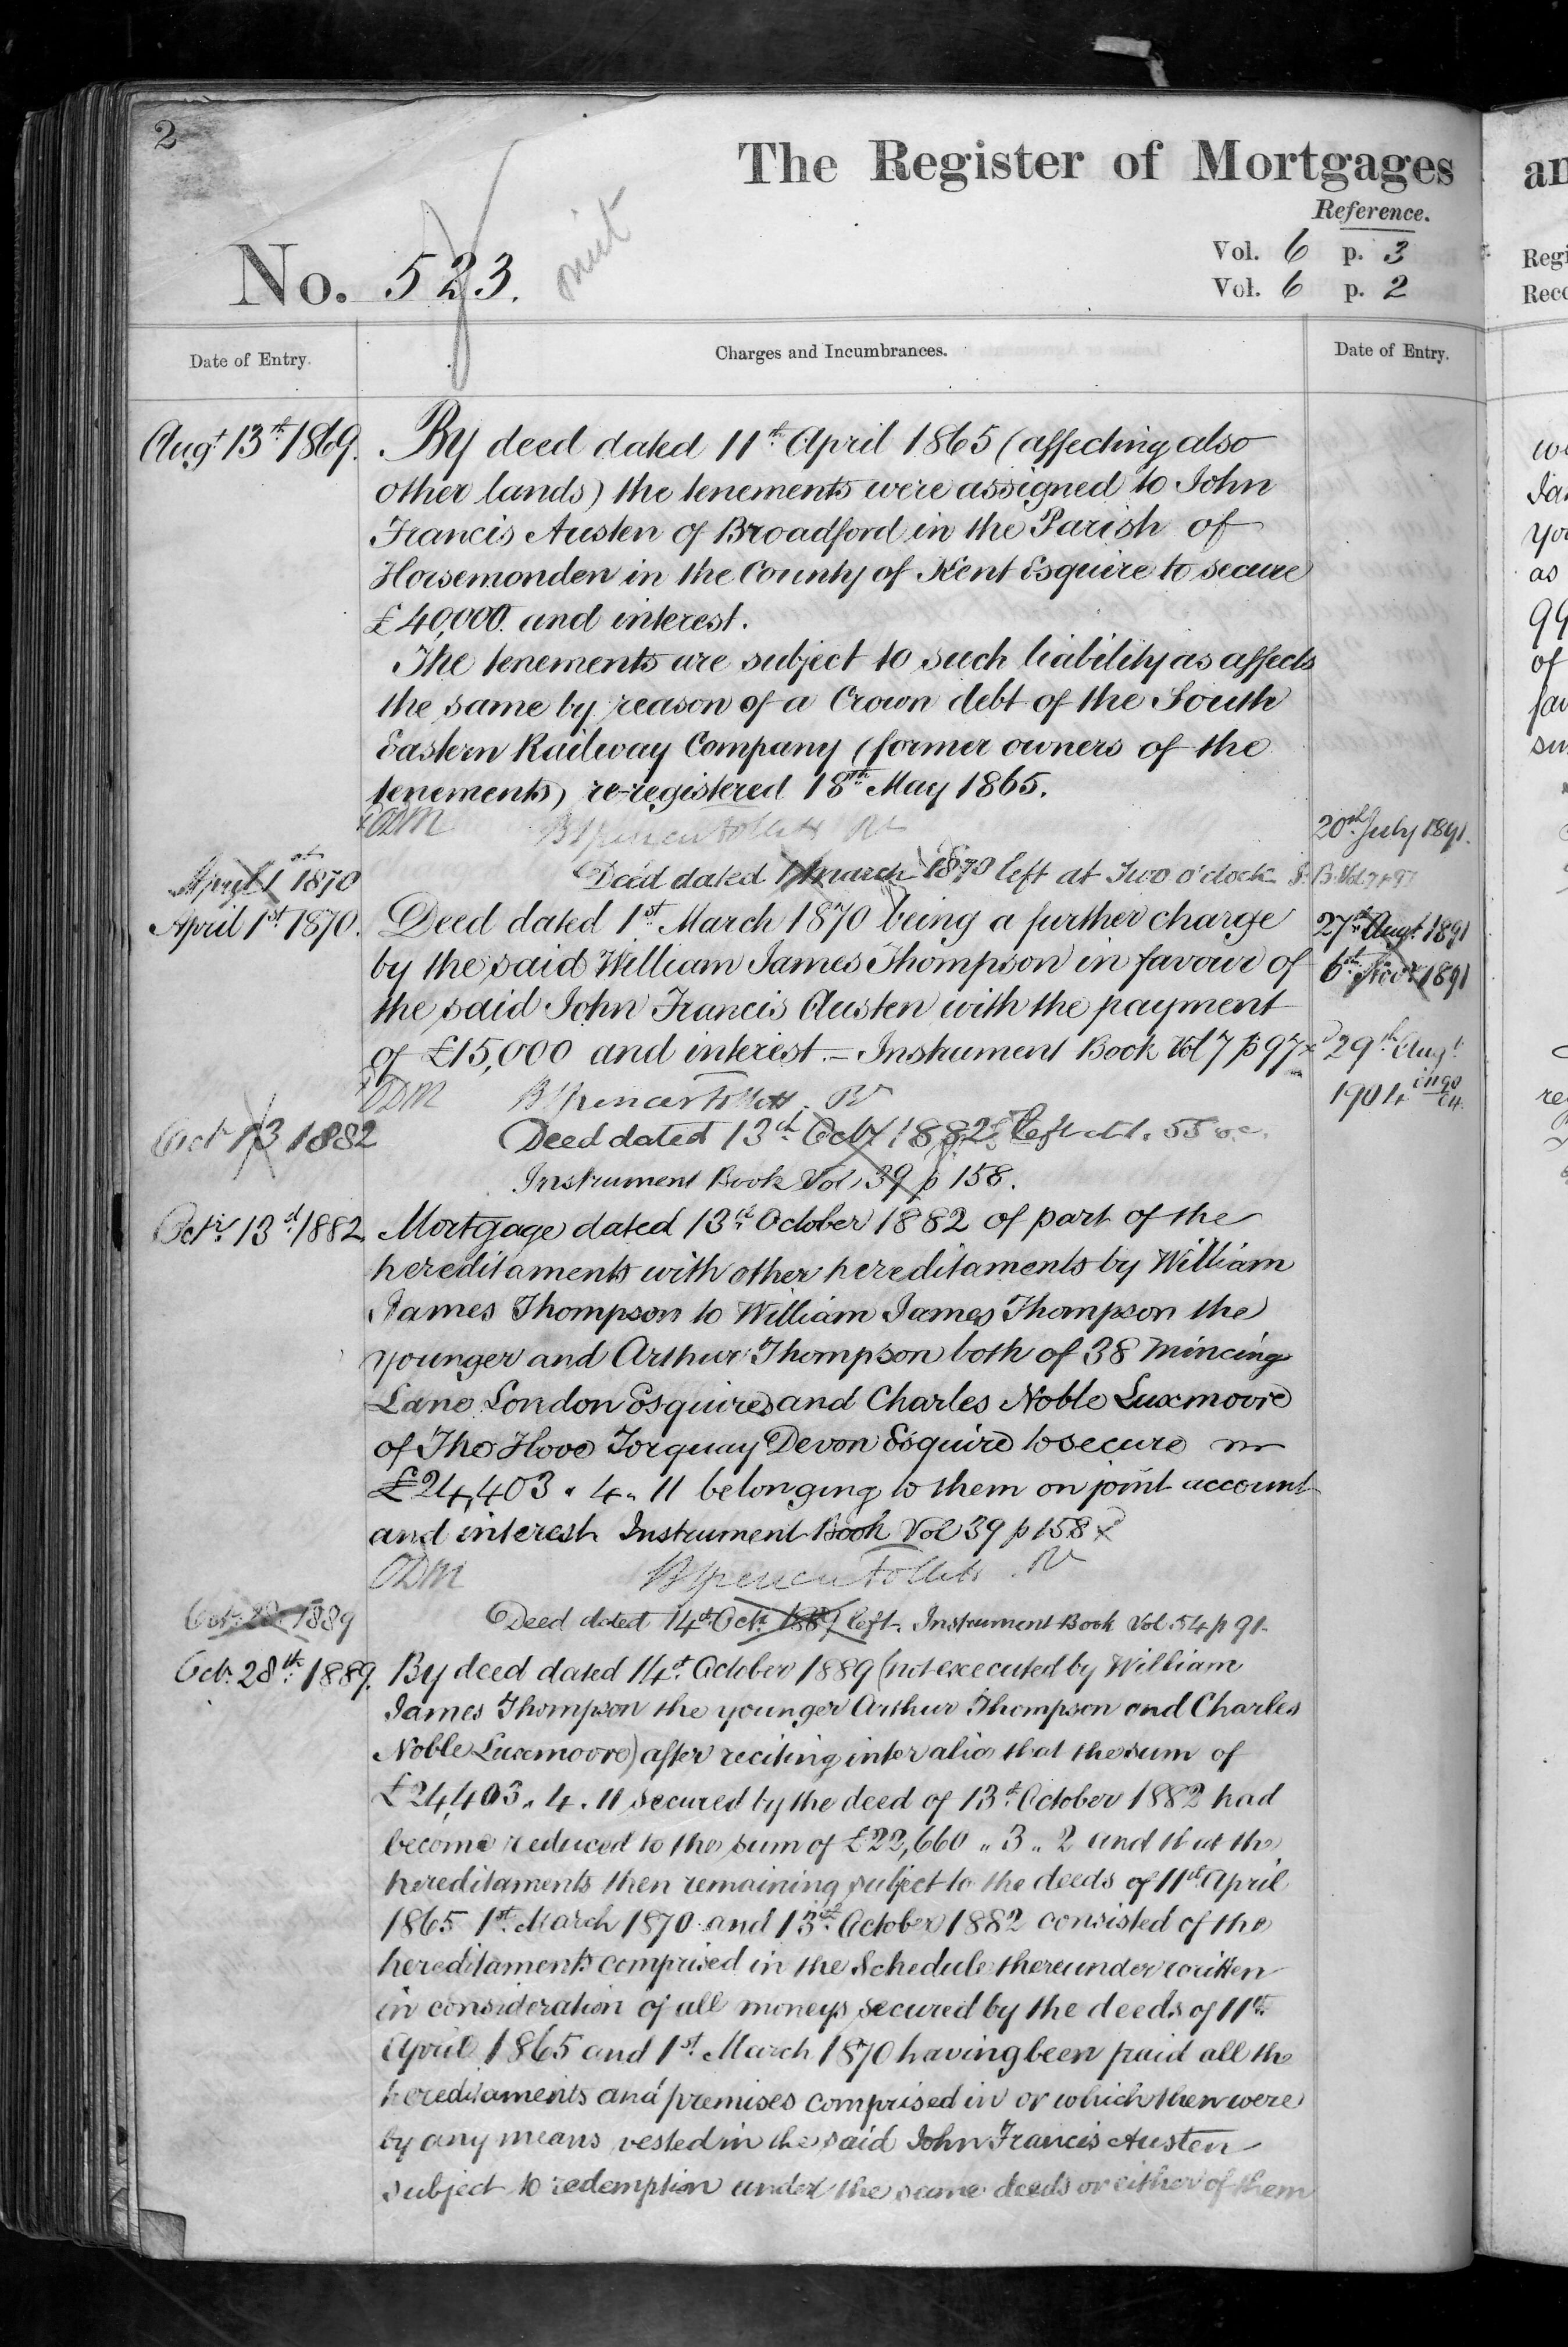 2
The Register of Mortgages
Reference.
No. 523.
omit
Vol. 6 p. 3
Vol. 6 p. 2
Date of Entry.
Charges and Incumbrances.
Date of Entry.
Augt 13th 1869.
By deed dated 11th April 1865 (affecting also
other lands) the tenements were assigned to John
Francis Austen of Broadford in the Parish of
Horsemonden in the County of Kent Esquire to secure
£40,000. and interest.
The tenements are subject to such liability as affects
the same by reason of a Crown debt of the South
Eastern Railway Company (former owners of the
tenements) re-registered 18th May 1865.
ODM BSpencerFollett Rr
20th July 1891.
April 1st 1870
Deed dated 1 March 1870 left at Two o'clock I.B. Vol 7 p 97
April 1st 1870.
Deed dated 1st March 1870 being a further charge
by the said William James Thompson in favour of
the said John Francis Austen with the payment
of £15,000 and interest. - Instrument Book Vol 7 p 97
27th Augt 1891
6th Novr 1891
29th Augt
1904
ODM BSpencerFollett Rr
Oct 13 1882
Deed dated 13th Octr 1882 left at 1.55 o.c.
Instrument Book Vol 39 p 158.
Octr 13th 1882.
Mortgage dated 13th October 1882 of part of the
hereditaments with other hereditaments by William
James Thompson to William James Thompson the
younger and Arthur Thompson both of 38 Mincing
Lane London Esquires and Charles Noble Luxmoore
of The Hove Torquay Devon Esquire to secure
£24,403 . 4 . 11 belonging to them on joint account
and interest Instrument Book Vol 39 p 158
ODM BSpencerFollett Rr
Oct. 28 1889
Deed dated 14th Octr 1889 left. Instrument Book Vol. 54 p 91.
Oct. 28th 1889.
By deed dated 14th October 1889 (not executed by William
James Thompson the younger Arthur Thompson and Charles
Noble Luxmoore) after reciting inter alia that the sum of
£24,403 . 4 . 11 secured by the deed of 13th October 1882 had
become reduced to the sum of £22,660 .. 3 .. 2 and that the
hereditaments then remaining subject to the deeds of 11th April
1865 1st March 1870 and 13th October 1882 consisted of the
hereditaments comprised in the Schedule thereunder written
in consideration of all moneys secured by the deeds of 11th
April 1865 and 1st March 1870 having been paid all the
hereditaments and premises comprised in or which then were
by any means vested in the said John Francis Austen
subject to redemption under the same deeds or either of them